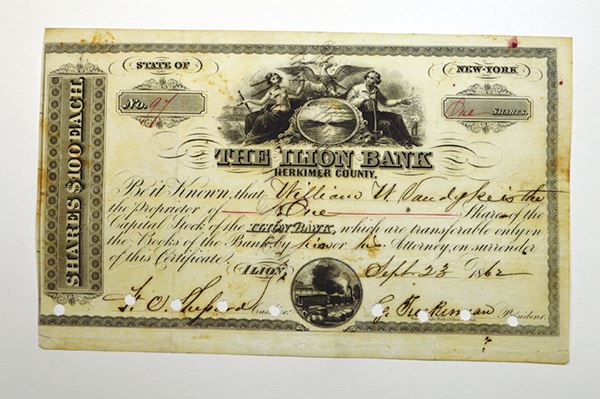 STATE OF NEW-YORK
No. 97 One SHARES
SHARES $100 EACH
THE ILION BANK
HERKIMER COUNTY.
Be it Known, that William W. Vandyke is the
the Proprietor of One Shares of the
Capital Stock of the ILION BANK, which are transferable only on
the Books of the Bank by his or his Attorney, on surrender
of this Certificate.
ILION, Sept. 23 1862
Cashier. President.